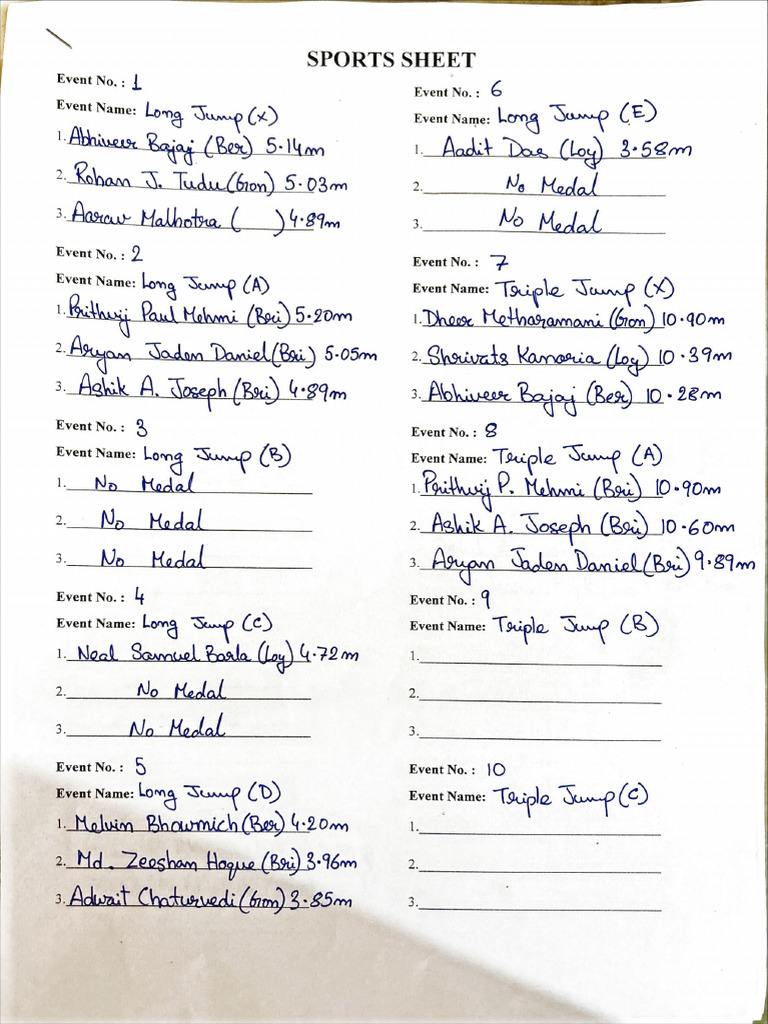 SPORTS SHEET
Event No. : 1
Event Name: Long Jump (X)
1. Abhiveer Bajaj (Ber) 5.14m
2. Rohan J. Tudu (Gon) 5.03m
3. Aarav Malhotra ( ) 4.89m
Event No. : 2
Event Name: Long Jump (A)
1. Prithvij Paul Mehmi (Bri) 5.20m
2. Aryan Jaden Daniel (Bri) 5.05m
3. Ashik A. Joseph (Bri) 4.89m
Event No. : 3
Event Name: Long Jump (B)
1. No Medal
2. No Medal
3. No Medal
Event No. : 4
Event Name: Long Jump (C)
1. Neal Samuel Barla (Loy) 4.72m
2. No Medal
3. No Medal
Event No. : 5
Event Name: Long Jump (D)
1. Melvin Bhowmich (Ber) 4.20m
2. Md. Zeeshan Hoque (Bri) 3.96m
3. Adwait Chaturvedi (Gon) 3.85m
Event No. : 6
Event Name: Long Jump (E)
1. Aadit Das (Loy) 3.58m
2. No Medal
3. No Medal
Event No. : 7
Event Name: Triple Jump (X)
1. Dheer Metharamani (Gon) 10.90m
2. Shrivats Kanoria (Loy) 10.39m
3. Abhiveer Bajaj (Ber) 10.28m
Event No. : 8
Event Name: Triple Jump (A)
1. Prithvij P. Mehmi (Bri) 10.90m
2. Ashik A. Joseph (Bri) 10.60m
3. Aryan Jaden Daniel (Bri) 9.89m
Event No. : 9
Event Name: Triple Jump (B)
1.
2.
3.
Event No. : 10
Event Name: Triple Jump (C)
1.
2.
3.